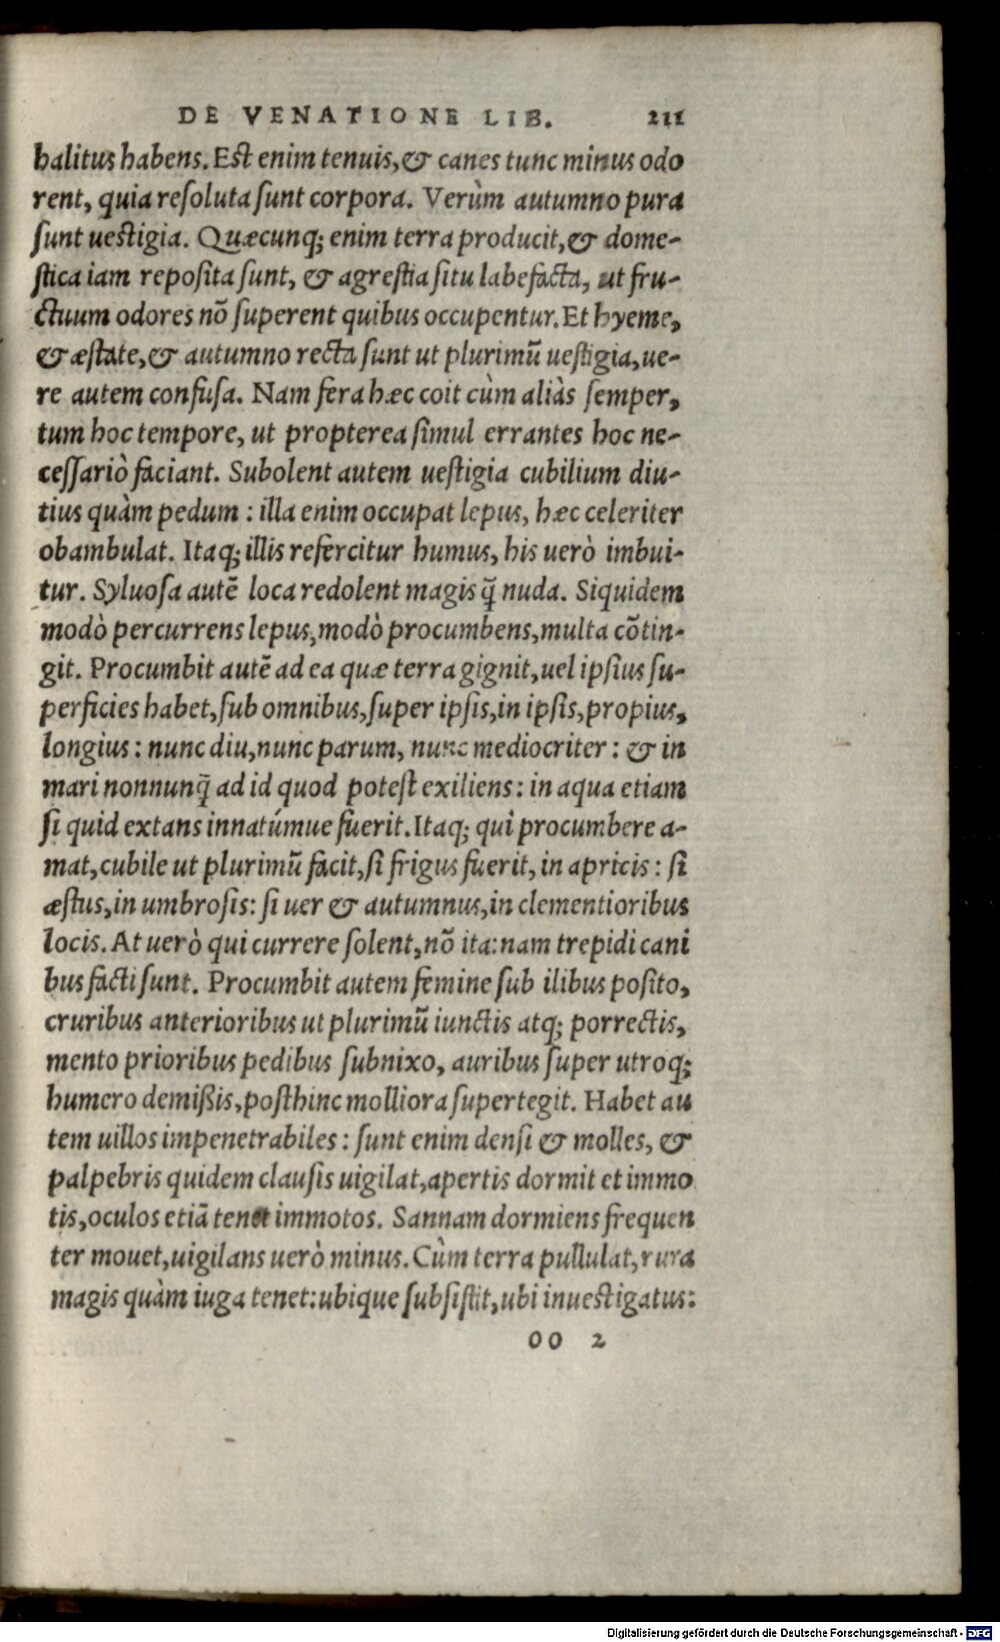 DE VENATIONE LIB. 211
halitus habens. Est enim tenuis, & canes tunc minus odo
rent, quia resoluta sunt corpora. Verùm autumno pura
sunt uestigia. Quæcunq; enim terra producit, & dome-
stica iam reposita sunt, & agrestia situ labefacta, ut fru-
ctuum odores nõ superent quibus occupentur. Et hyeme,
& æstate, & autumno recta sunt ut plurimũ uestigia, ue-
re autem confusa. Nam fera hæc coit cùm aliàs semper,
tum hoc tempore, ut propterea simul errantes hoc ne-
cessariò faciant. Subolent autem uestigia cubilium diu-
tius quàm pedum : illa enim occupat lepus, hæc celeriter
obambulat. Itaq; illis refercitur humus, his uerò imbui-
tur. Syluosa autẽ loca redolent magis q̃ nuda. Siquidem
modò percurrens lepus, modò procumbens, multa cõtin-
git. Procumbit autẽ ad ea quæ terra gignit, uel ipsius su-
perficies habet, sub omnibus, super ipsis, in ipsis, propius,
longius : nunc diu, nunc parum, nunc mediocriter : & in
mari nonnunq̃ ad id quod potest exiliens : in aqua etiam
si quid extans innatúmue fuerit. Itaq; qui procumbere a-
mat, cubile ut plurimũ facit, si frigus fuerit, in apricis : si
æstus, in umbrosis: si uer & autumnus, in clementioribus
locis. At uerò qui currere solent, nõ ita: nam trepidi cani
bus facti sunt. Procumbit autem femine sub ilibus posito,
cruribus anterioribus ut plurimũ iunctis atq; porrectis,
mento prioribus pedibus subnixo, auribus super utroq;
humero demißis, posthinc molliora supertegit. Habet au
tem uillos impenetrabiles : sunt enim densi & molles, &
palpebris quidem clausis uigilat, apertis dormit et immo
tis, oculos etiã tenet immotos. Sannam dormiens frequen
ter mouet, uigilans uerò minus. Cùm terra pullulat, rura
magis quàm iuga tenet: ubique subsistit, ubi inuestigatus:
oo 2
Digitalisierung gefördert durch die Deutsche Forschungsgemeinschaft - DFG